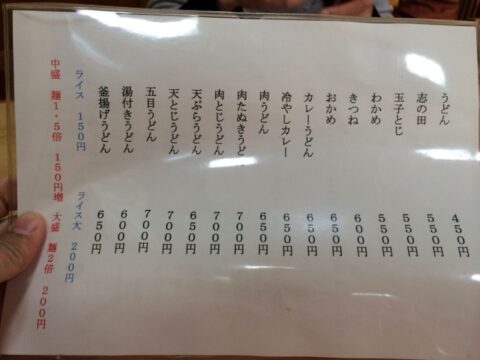 うどん 450円
志の田 550円
玉子とじ 550円
わかめ 550円
きつね 600円
おかめ 650円
カレーうどん 650円
冷やしカレー 650円
肉うどん 650円
肉たぬきうどん 700円
肉とじうどん 700円
天ぷらうどん 650円
天とじうどん 700円
五目うどん 700円
湯付きうどん 600円
釜揚げうどん 650円
ライス 150円 ライス大 200円
中盛 麺1・5倍 150円増 大盛 麺2倍 200円